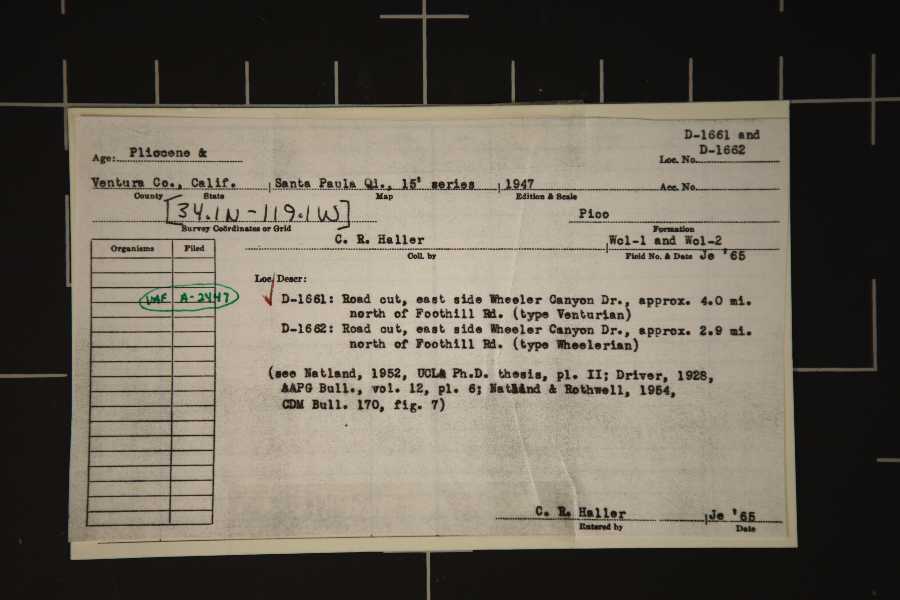 D-1661 and
Age: Pliocene &
D-1662
Loc. No.
Ventura Co., Calif. Santa Paula Ql., 15' series 1947 Acc. No.
County State Map Edition & Scale
[34.1N-119.1W] Pico
Survey Coördinates or Grid Formation
C. R. Haller Wcl-1 and Wcl-2
Organisms Filed Coll. by Field No. & Date Je '65
Loc. Descr:
UAF A-2447 D-1661: Road cut, east side Wheeler Canyon Dr., approx. 4.0 mi.
north of Foothill Rd. (type Venturian)
D-1662: Road cut, east side Wheeler Canyon Dr., approx. 2.9 mi.
north of Foothill Rd. (type Wheelerian)
(see Natland, 1952, UCLA Ph.D. thesis, pl. II; Driver, 1928,
AAPG Bull., vol. 12, pl. 6; Natland & Rothwell, 1954,
CDM Bull. 170, fig. 7)
C. R. Haller Je '65
Entered by Date